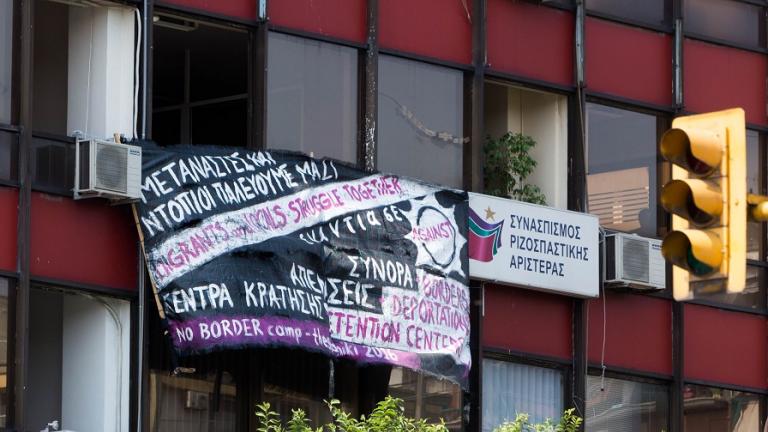 ΜΕΤΑΝΑΣΤΕΣ ΚΑΙ
ΝΤΟΠΙΟΙ ΠΑΛΕΥΟΥΜΕ ΜΑΖΙ
LOCALS STRUGGLE TOGETHER
ΕΝΑΝΤΙΑ ΣΕ
AGAINST
ΣΥΝΟΡΑ BORDERS
ΑΠΕΛΑΣΕΙΣ DEPORTATIONS
ΚΕΝΤΡΑ ΚΡΑΤΗΣΗΣ DETENTION CENTERS
NO BORDER camp - thessaloniki 2016
ΣΥΝΑΣΠΙΣΜΟΣ
ΡΙΖΟΣΠΑΣΤΙΚΗΣ
ΑΡΙΣΤΕΡΑΣ